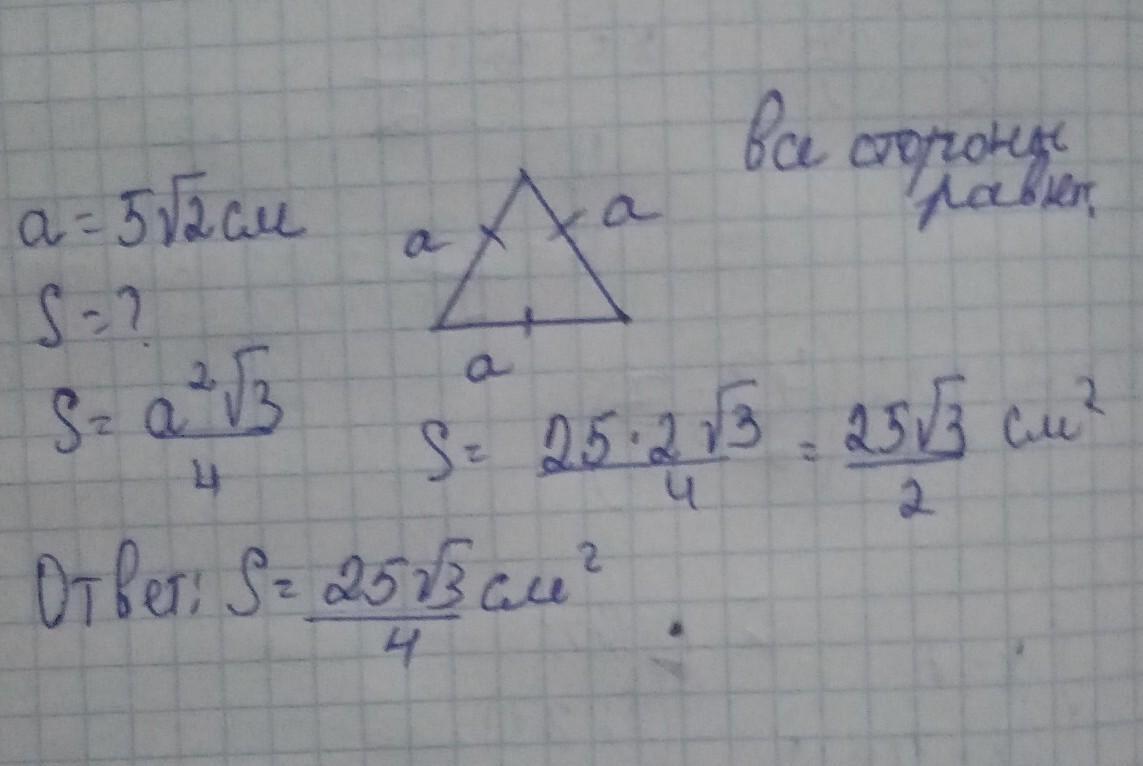 Все стороны
равны.
a = 5√2 см
a
a
S = ?
a
S = a²√3 / 4
S = 25·2√3 / 4 = 25√3 / 2 см²
Ответ: S = 25√3 / 4 см²